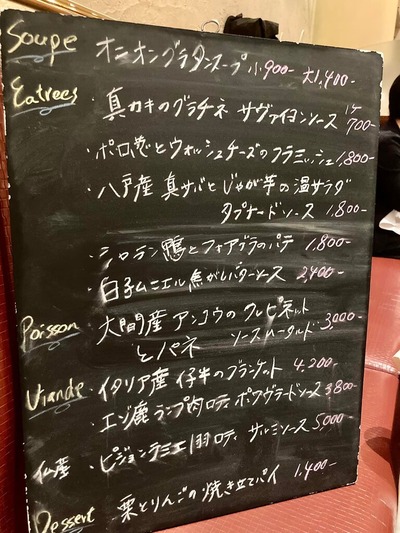 Soupe オニオングラタンスープ 小900- 大1,400-
Entrees ・真カキのグラチネ サヴァイヨンソース 1ケ700-
・ポロ葱とウォッシュチーズのフラミッシュ 1,800-
・八戸産 真サバとじゃが芋の温サラダ
タプナードソース 1,800-
・シャラン鴨とフォアグラのパテ 1,800-
・白子ムニエル焦がしバターソース 2,400-
Poisson 大間産 アンコウのクレピネット
とパネ ソースムータルド 3,000-
Viande ・イタリア産 仔牛のブランケット 4,200-
・エゾ鹿ランプ肉ロティ ポワヴラードソース 3,800-
仏産 ・ピジョンラミエ1羽ロティ サルミソース 5,000-
Dessert 栗とりんごの焼き立てパイ 1,400-